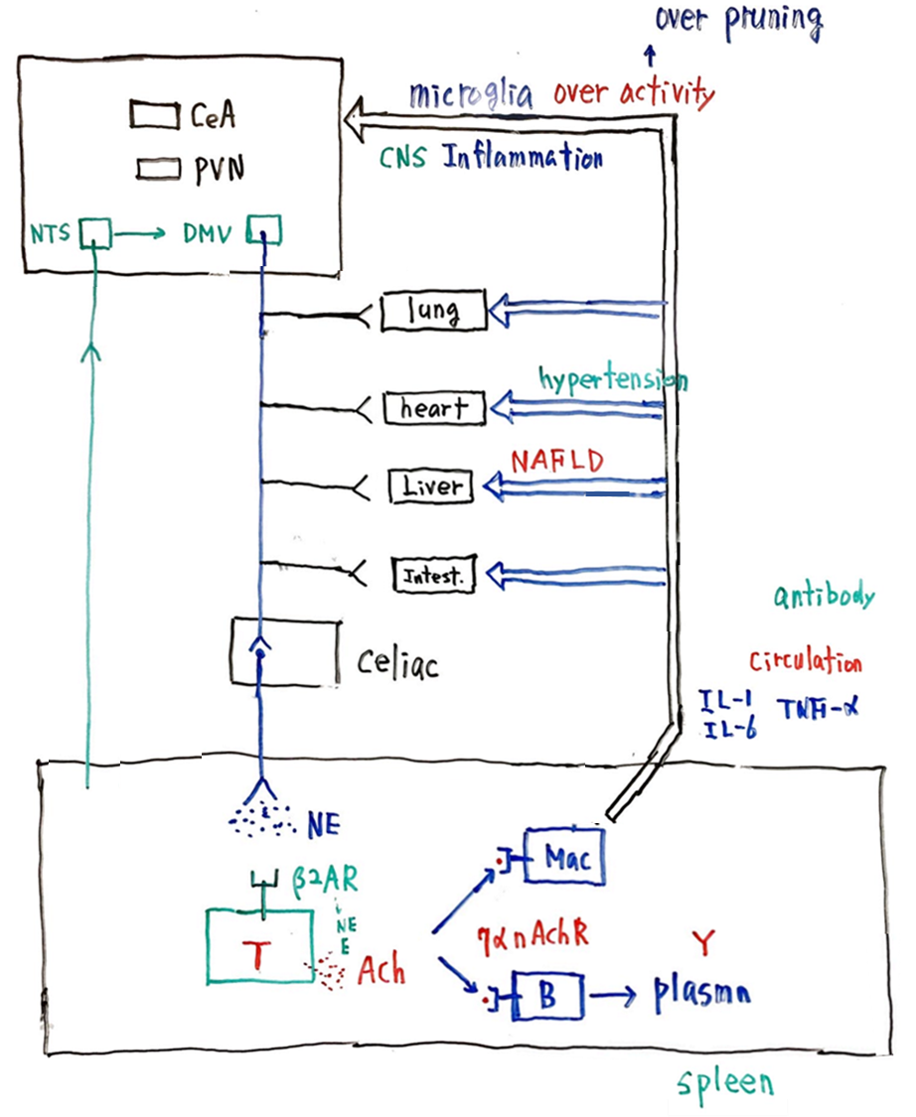 over pruning
microglia over activity
CNS Inflammation
CeA
PVN
NTS
DMV
lung
hypertension
heart
NAFLD
Liver
Intest.
antibody
celiac
circulation
IL-1
IL-6
TNF-α
NE
Mac
β2AR
NE
E
T
Ach
7αnAchR
Y
B
plasma
spleen